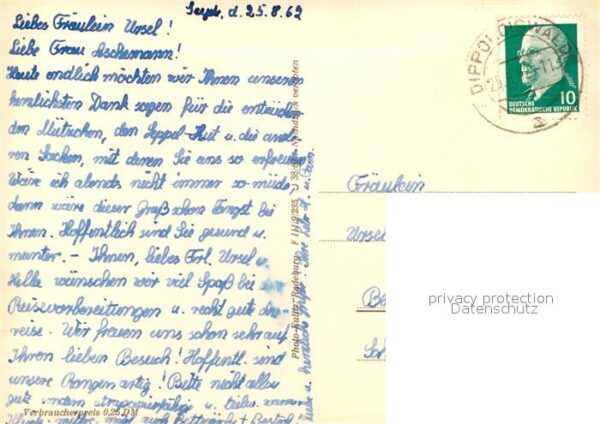 d. 25.8.62
Liebes Fräulein Ursel!
Liebe Frau
Heute endlich möchten wir Ihnen unseren
herzlichsten Dank sagen für die entzücken
den Mützchen, den Seppel-Hut u. die ande
ren Sachen, mit denen Sie uns so erfreuten.
Wäre ich abends nicht immer so müde,
dann wäre dieser Gruß schon längst bei
Ihnen. Hoffentlich sind Sie gesund u.
munter. - Ihnen, liebes Frl. Ursel u.
Hella wünschen wir viel Spaß bei
Reisevorbereitungen u. recht gute
reise. Wir freuen uns schon sehr auf
Ihren lieben Besuch! Hoffentl. sind
unsere Rangen artig! Bitte nicht allzu
gute sondern strapazierfähig u. teilw.
mitbr.
Verbraucherpreis 0,25 DM
Photo-Kulitz, Radeburg
u. herzlich grüßt
DIPPOLDISWALDE
a
DEUTSCHE
DEMOKRATISCHE REPUBLIK
10
Fräulein
Ursel
privacy protection
Datenschutz